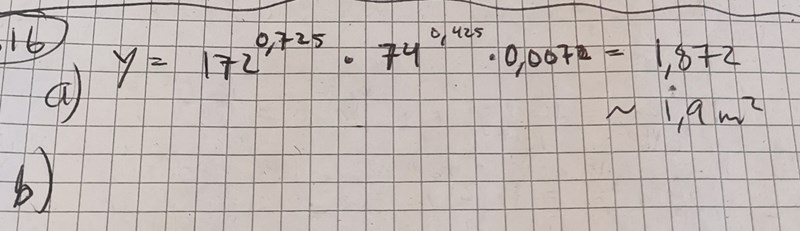 16
a) y = 172^0,725 · 74^0,425 · 0,0072 = 1,872
~ 1,9 m²
b)